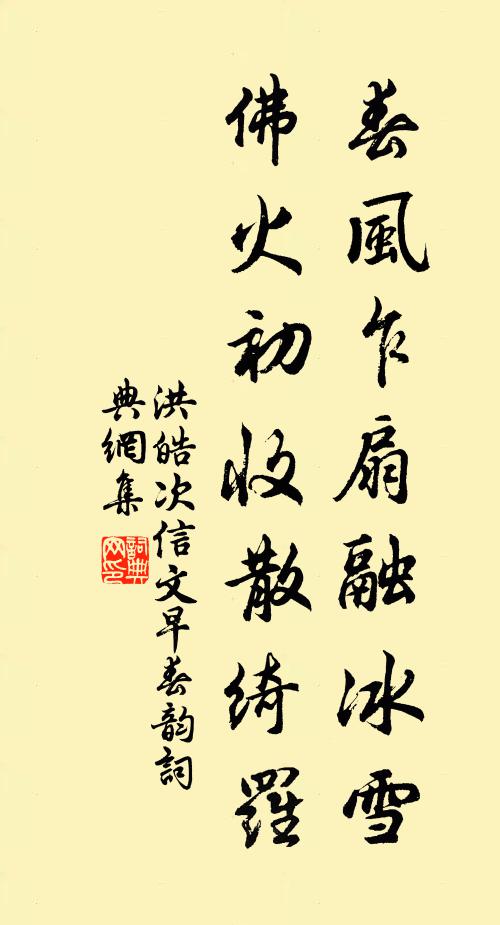 春風乍扇融冰雪
佛火初收散綺羅
洪皓次信文早春韵詞
典網集
詞典
网印